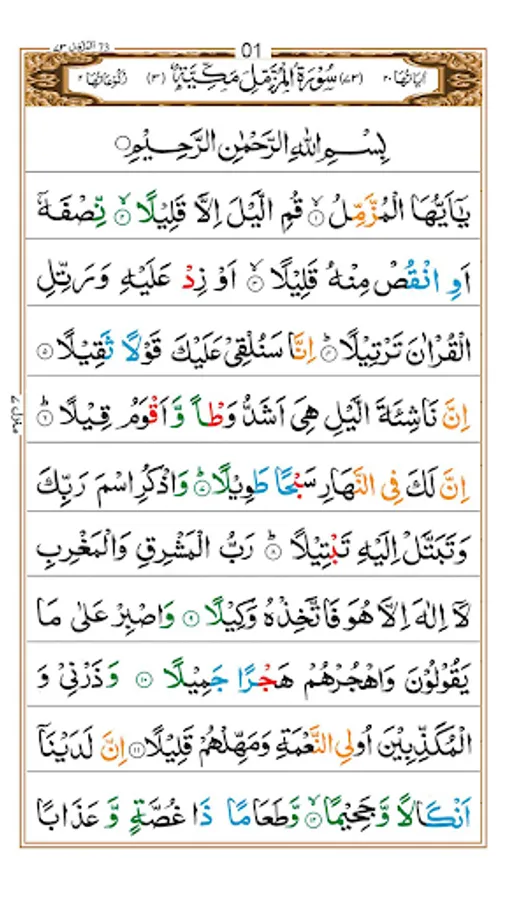 73 المزمل ٧٣
01
اٰیاتھا ٢٠ (٧٣) سُوْرَةُ الْمُزَّمِّلِ مَكِّيَّةٌ (٣) رُكُوْعَاتُهَا ٢
بِسْمِ اللّٰهِ الرَّحْمٰنِ الرَّحِيْمِ
يٰۤاَيُّهَا الْمُزَّمِّلُ ۙ۝١ قُمِ الَّيْلَ اِلَّا قَلِيْلًا ۙ۝٢ نِّصْفَهٗۤ
اَوِ انْقُصْ مِنْهُ قَلِيْلًا ۙ۝٣ اَوْ زِدْ عَلَيْهِ وَرَتِّلِ
الْقُرْاٰنَ تَرْتِيْلًا ؕ۝٤ اِنَّا سَنُلْقِيْ عَلَيْكَ قَوْلًا ثَقِيْلًا ۝٥
اِنَّ نَاشِئَةَ الَّيْلِ هِيَ اَشَدُّ وَطْاً وَّاَقْوَمُ قِيْلًا ؕ۝٦
اِنَّ لَكَ فِي النَّهَارِ سَبْحًا طَوِيْلًا ؕ۝٧ وَاذْكُرِ اسْمَ رَبِّكَ
وَتَبَتَّلْ اِلَيْهِ تَبْتِيْلًا ؕ۝٨ رَبُّ الْمَشْرِقِ وَالْمَغْرِبِ
لَاۤ اِلٰهَ اِلَّا هُوَ فَاتَّخِذْهُ وَكِيْلًا ۝٩ وَاصْبِرْ عَلٰى مَا
يَقُوْلُوْنَ وَاهْجُرْهُمْ هَجْرًا جَمِيْلًا ۝١٠ وَذَرْنِيْ وَ
الْمُكَذِّبِيْنَ اُولِي النَّعْمَةِ وَمَهِّلْهُمْ قَلِيْلًا ۝١١ اِنَّ لَدَيْنَاۤ
اَنْكَالًا وَّجَحِيْمًا ۙ۝١٢ وَّطَعَامًا ذَا غُصَّةٍ وَّعَذَابًا